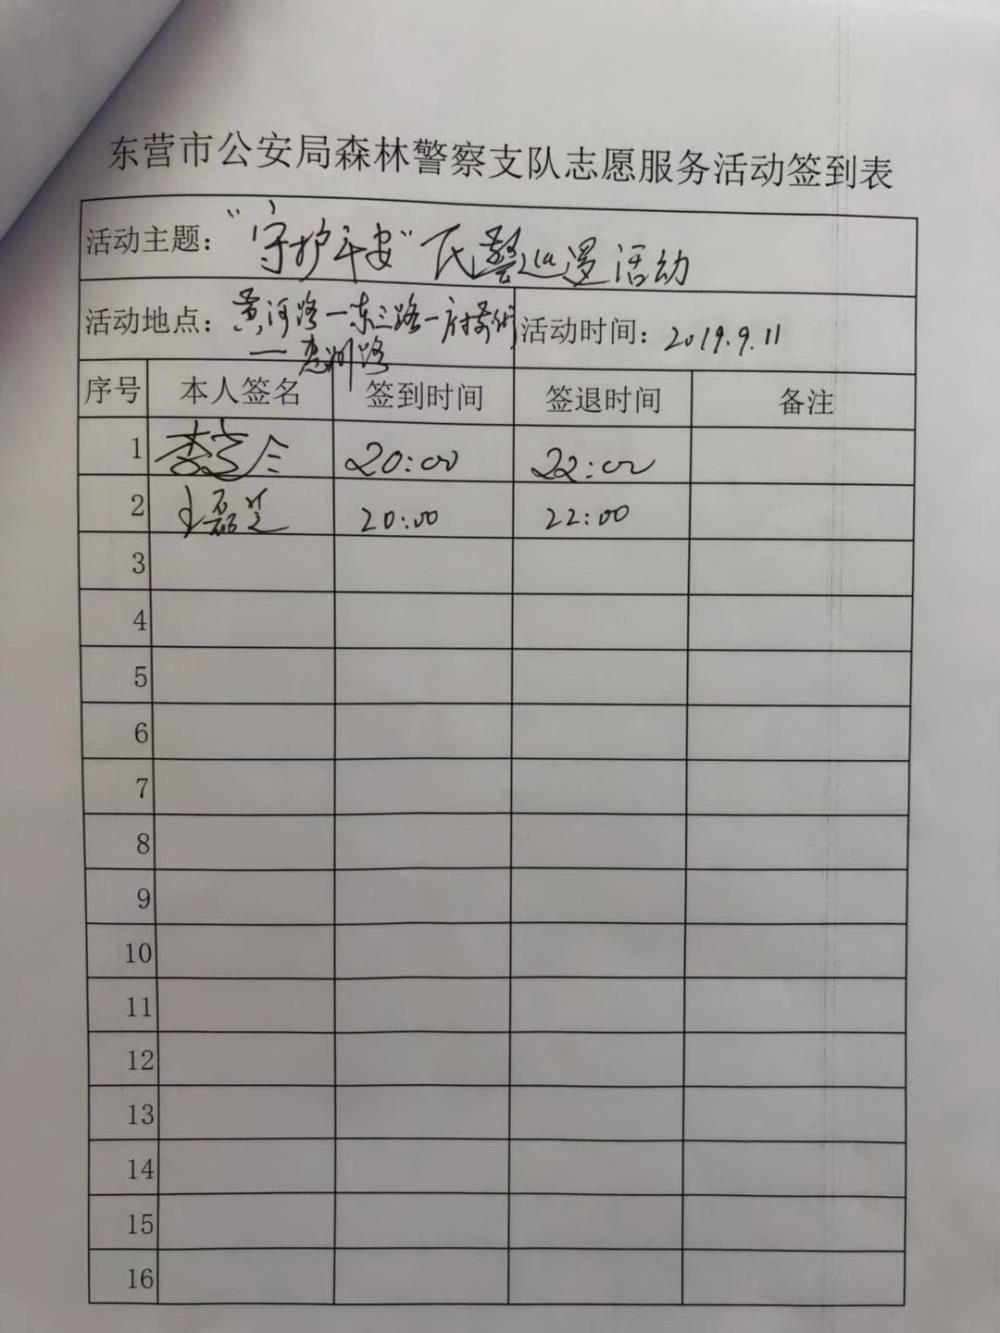 东营市公安局森林警察支队志愿服务活动签到表
活动主题：“守护平安”民警巡逻活动
活动地点：黄河路一东三路一府前街 活动时间：2019.9.11
一 路
序号 本人签名 签到时间 签退时间 备注
1 李 20:00 22:00
2 王磊 20:00 22:00
3
4
5
6
7
8
9
10
11
12
13
14
15
16